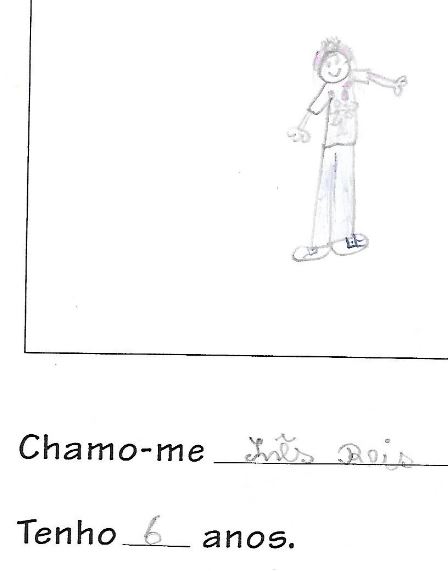 Chamo-me Inês Reis
Tenho 6 anos.